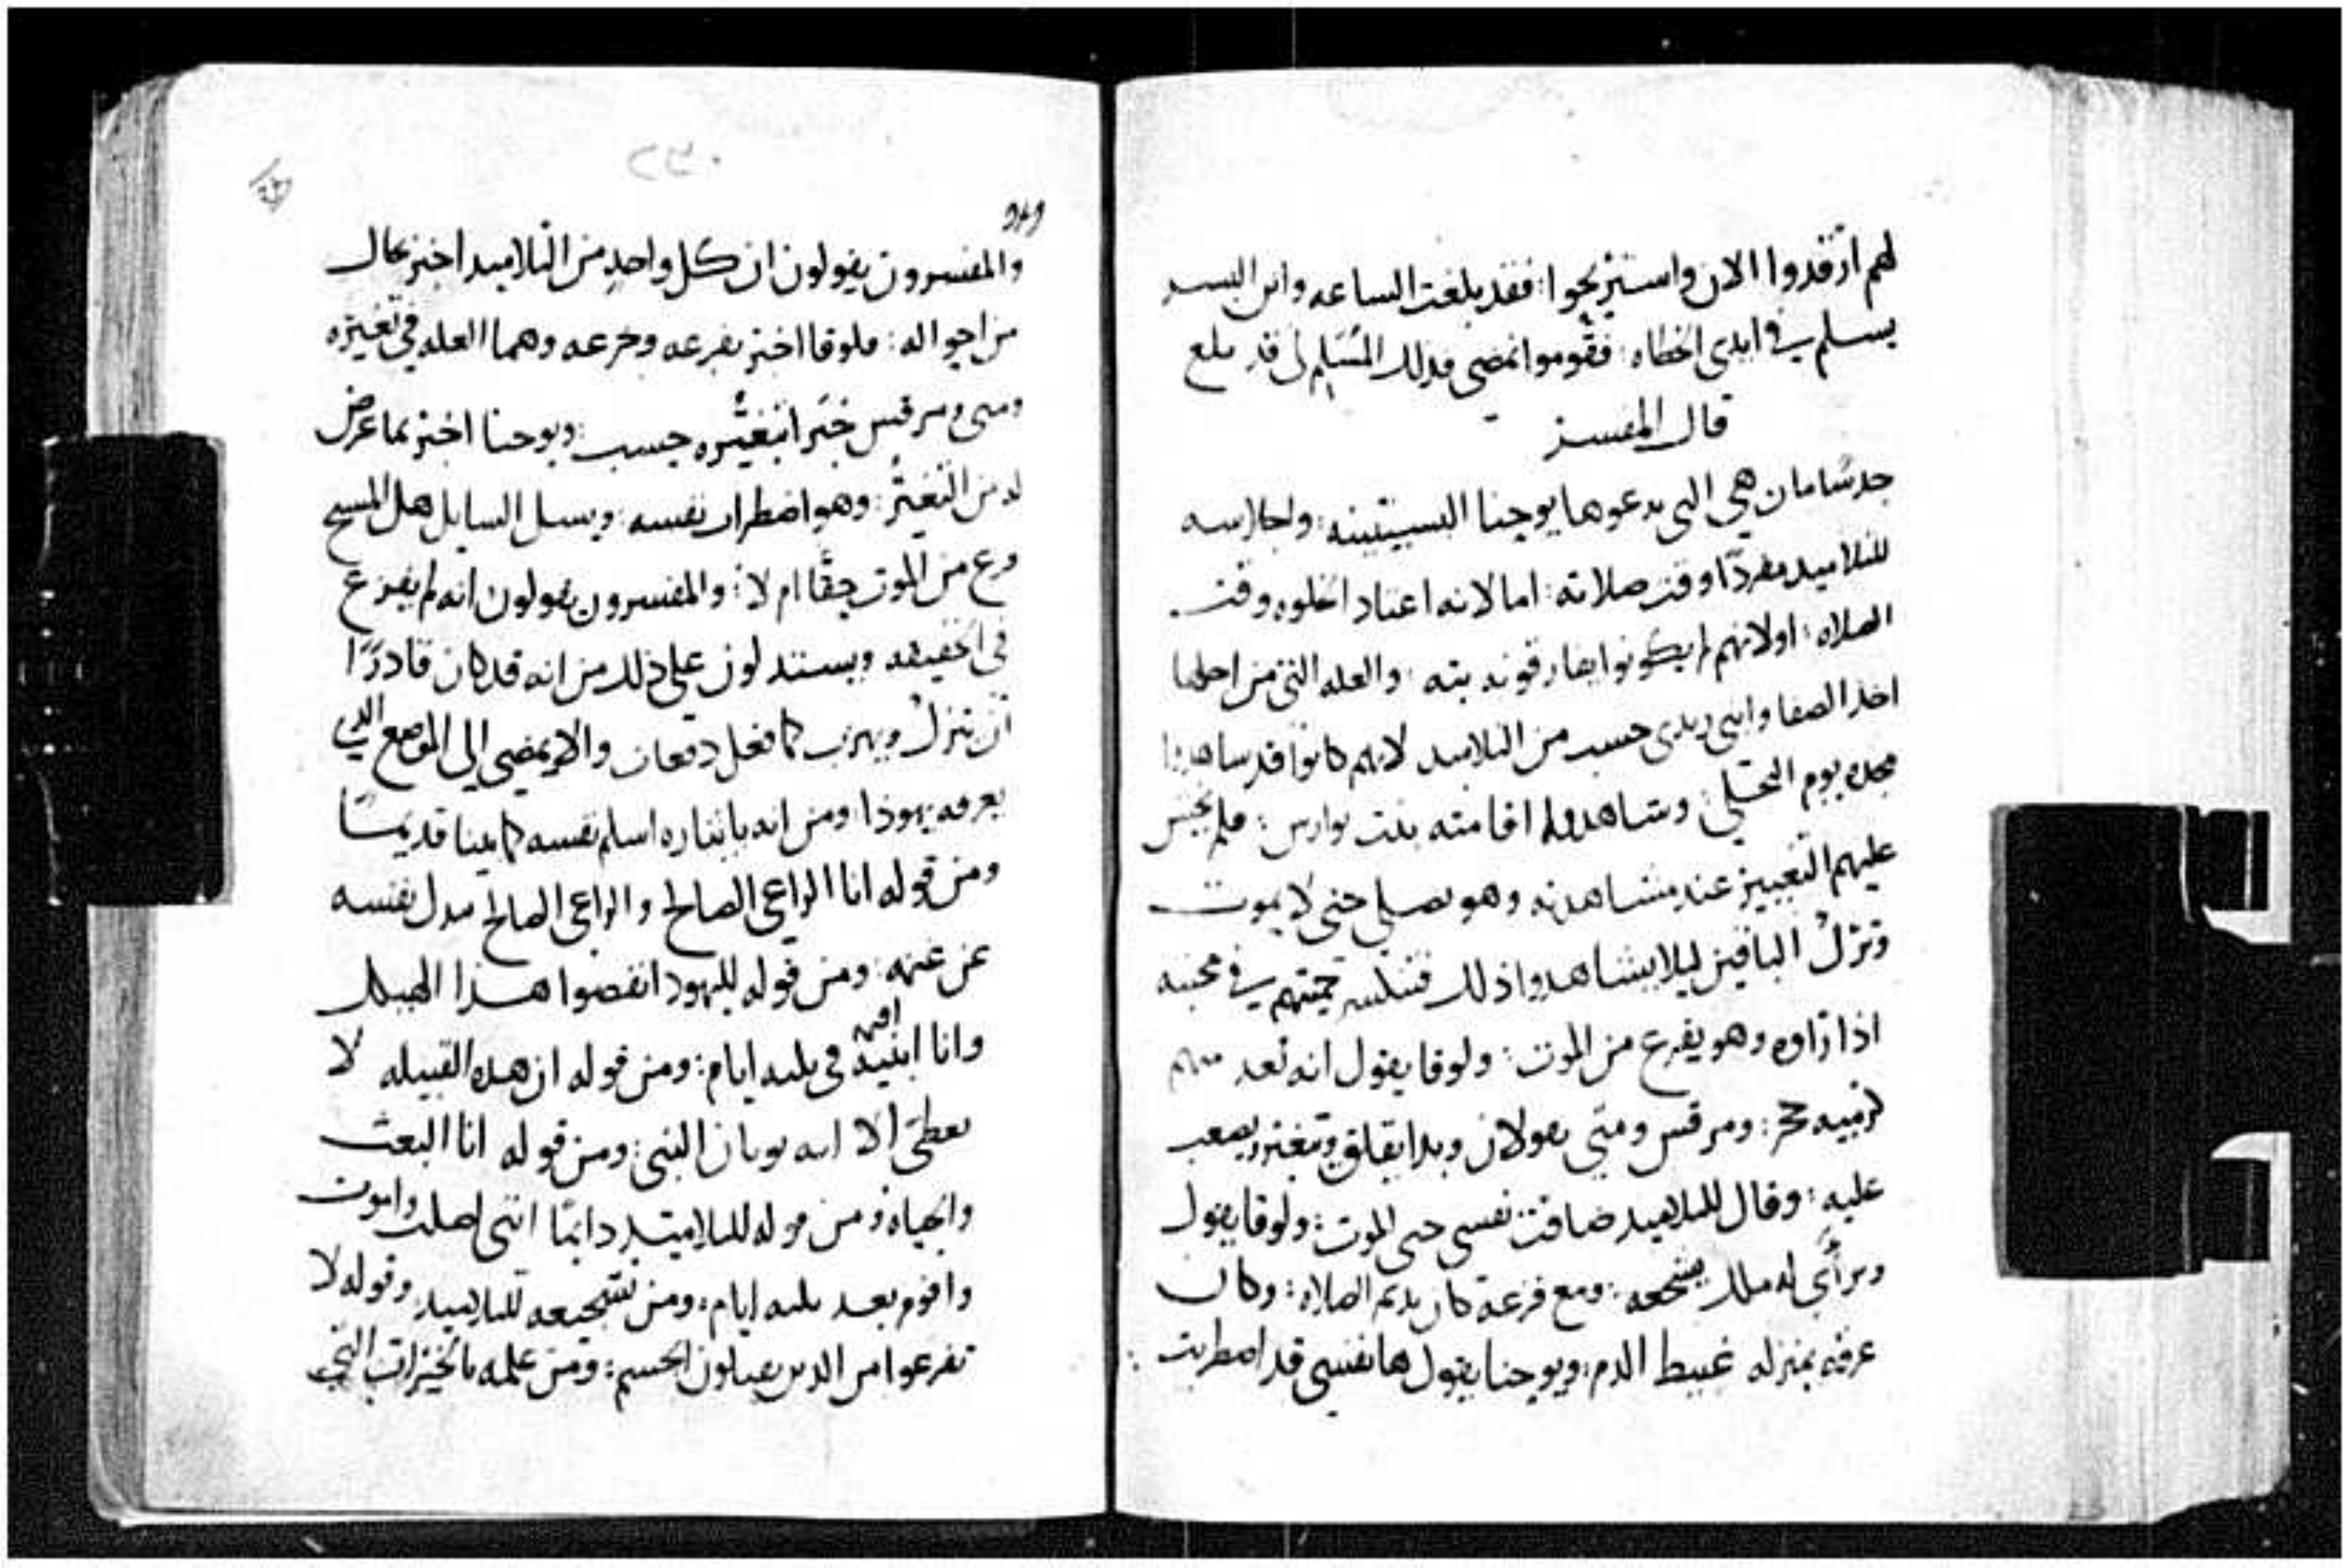 لهم ارقدوا الان واستريحوا: فقد بلغت الساعه وابن البشر
يسلم في ايدي الخطاه: فقوموا نمضي فذلك المسلم لي قد بلغ
قال المفسر
جدسامان هي التي يدعوها يوحنا
للتلاميد مفردًا وقت صلاته: اما لانه اعتاد الخلوه وقت
الصلاه: اولانهم لم يكونوا يفارقونه بته: والعله التي من اجلها
اخذ الصفا وابني زبدى حسب من التلاميد لانهم كانوا قد شاهدوا
مجده يوم التجلي وشاهدوا اقامته بنت يوارس: فلم
عليهم التغيير عند مشاهدته وهو يصلي حتى لا يموت
وترك الباقين ليلا يشاهدوا ذلك في محبته
اذا راوه وهو يفزع من الموت: ولوقا يقول انه بعد منهم
كرميه حجر: ومرقس ومتى يقولان وبدا يقلق ويتغير ويصعب
عليه: وقال للتلاميد ضاقت نفسي حتى الموت: ولوقا يقول
وترأي له ملك يشجعه: ومع فزعه كان يديم الصلاه: وكان
عرقه بمنزله غبيط الدم: ويوحنا يقول ها نفسي قد اضطربت:
والمفسرون يقولون ان كل واحد من التلاميد اخبر بحال
من احواله: فلوقا اخبر بفزعه وجزعه وهما العله في تغيره
ومتى ومرقس خبرا بتغيره حسب: ويوحنا اخبر بما عرض
له من التغير: وهو اضطراب نفسه: ويسل السايل هل المسيح
فزع من الموت حقًا ام لا: والمفسرون يقولون انه لم يفزع
في الحقيقه ويستدلون على ذلك من انه قد كان قادرًا
ان يترك ويهرب كما فعل دفعات والا يمضي الى الموضع الذي
يعرفه يهوذا: ومن انه بايثاره اسلم نفسه كما بينا قديمًا
ومن قوله انا الراعي الصالح والراعي الصالح يبدل نفسه
عن غنمه: ومن قوله لليهود انقضوا هذا الهيكل
وانا ابنيه اقيمه في تلته ايام: ومن قوله ان هذه القبيله لا
تعطى الا ايه يونان النبي: ومن قوله انا البعث
والحياه ومن قوله للتلاميد دايمًا انني اصلب واموت
واقوم بعد تلته ايام: ومن تشجيعه للتلاميد وقوله لا
تفزعوا من الدين يقتلون الجسم: ومن علمه بالخيرات التي